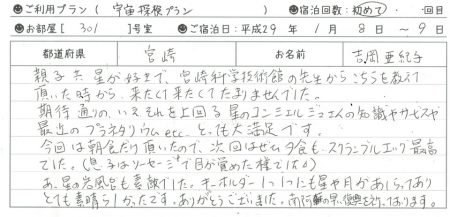 ●ご利用プラン（ 宇宙探検プラン ） ●宿泊回数：初めて・ 回目
●お部屋【 301 】号室 ●ご宿泊日：平成29年 1月 8日 ～ 9日
都道府県 宮崎 お名前 吉岡亜紀子
親子共、星が好きで、宮崎科学技術館の先生からこちらを教えて
頂いた時から、来たくて来たくてたまりませんでした。
期待通りの、いえそれを上回る星のコンシェルジュさんの知識やサービスや
最近のプラネタリウムetc. とっても大満足です。
今回は朝食だけ頂いたので、次回はぜひ夕食も。スクランブルエッグ最高
でした。（息子はソーセージで目が覚めた様でした）
あ、星の岩風呂も素敵でした。キーホルダー1つ1つにも星や月があしらってあり
とても素晴らしかったです。ありがとうございました。南阿蘇の早い復興を祈っております。